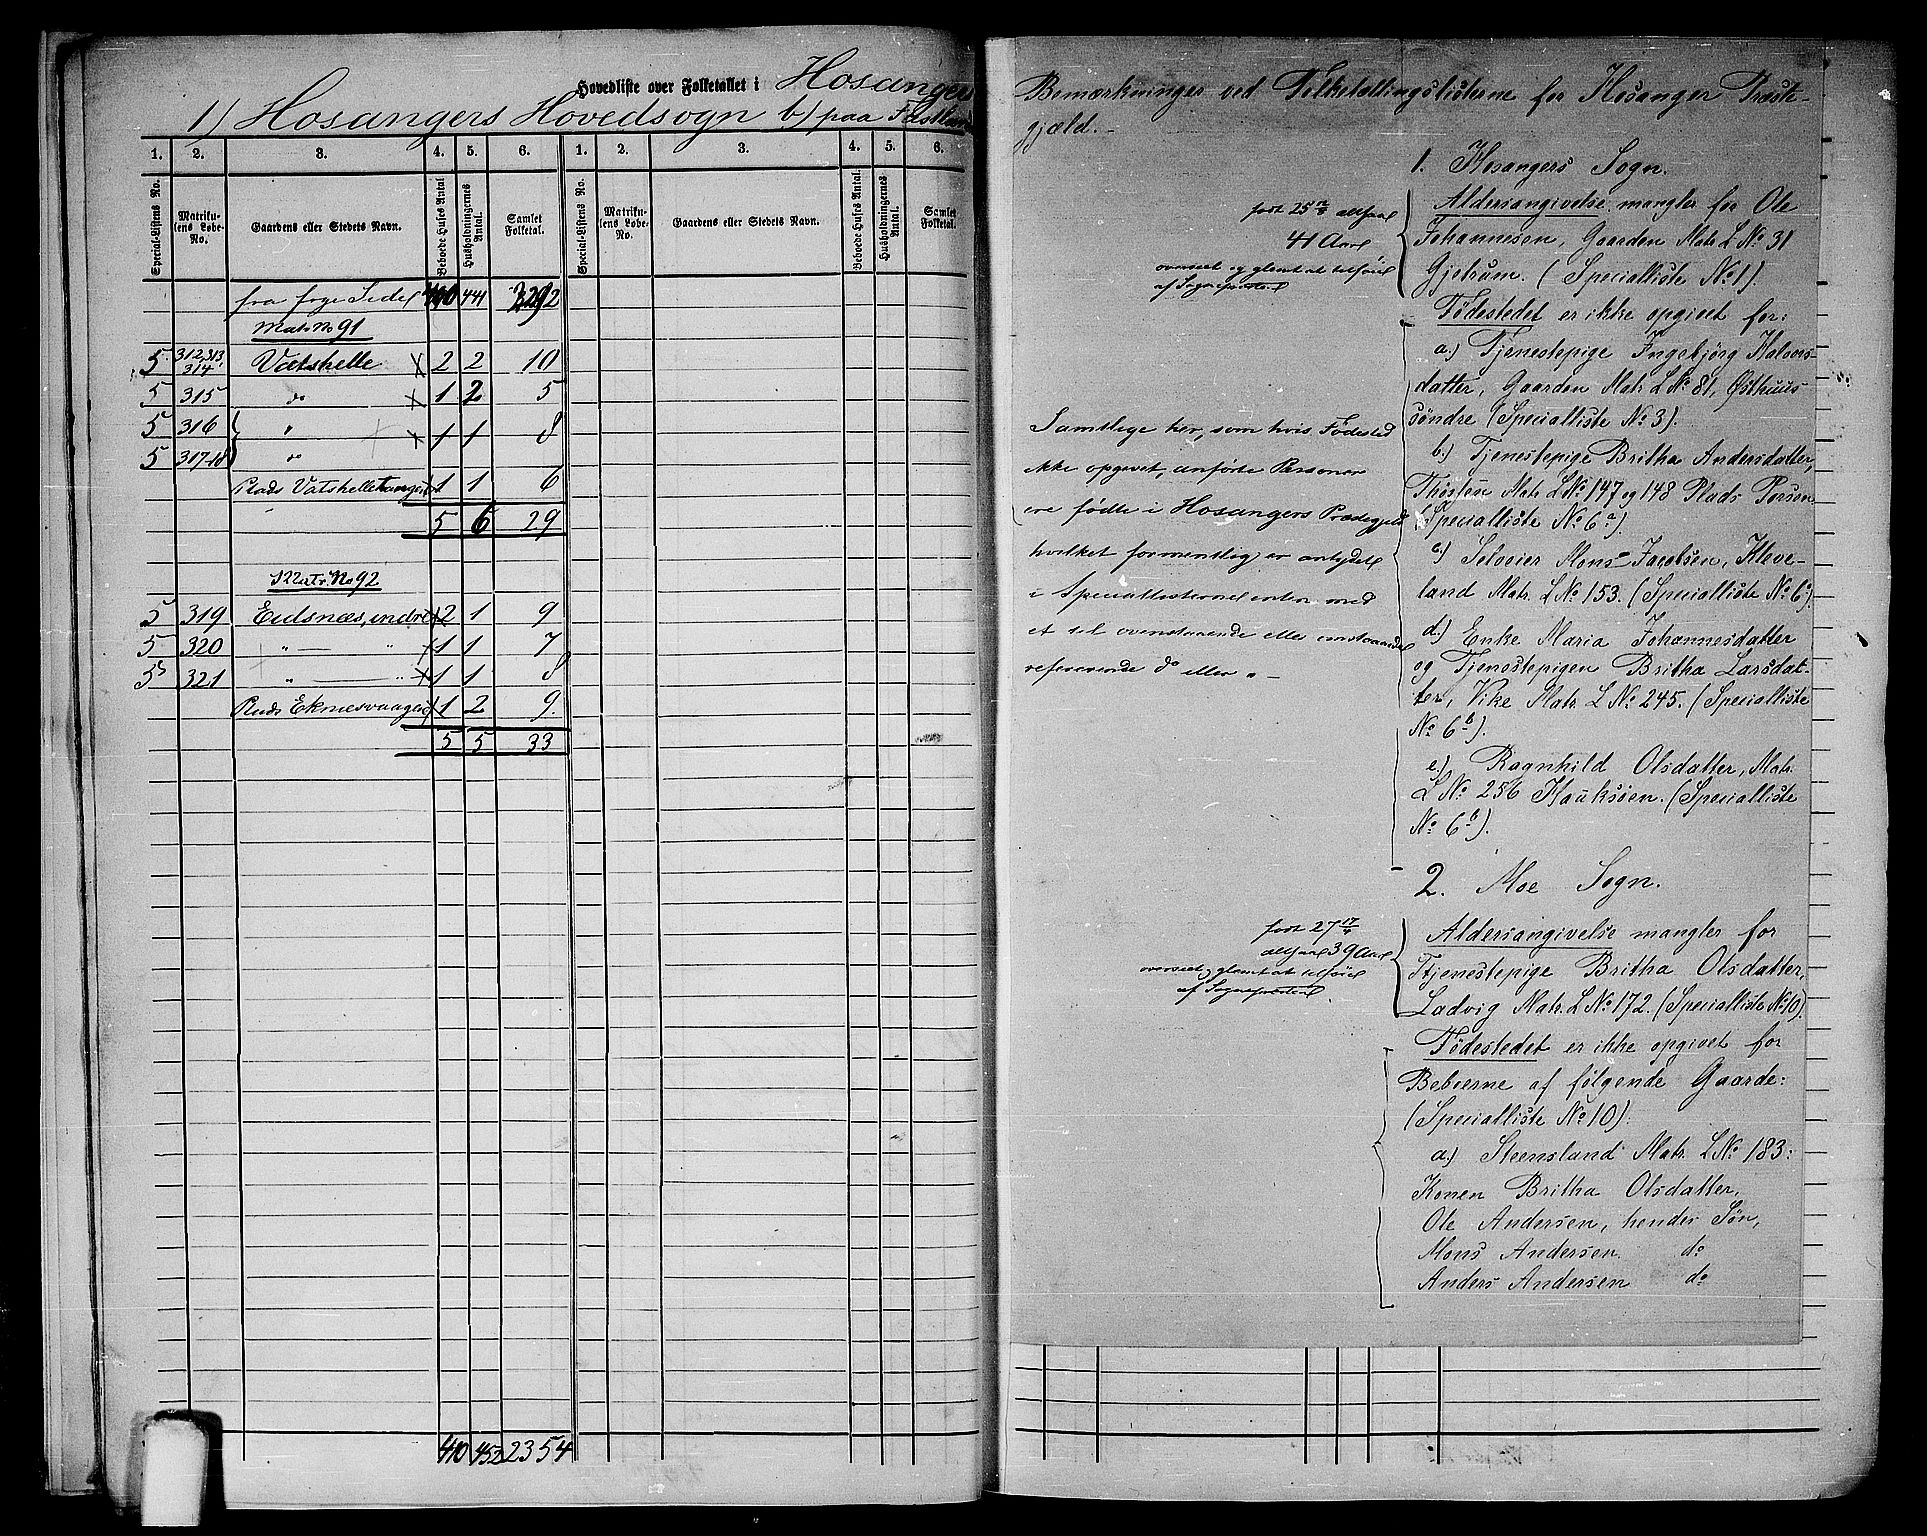 Hovedliste over Folketallet i Hosangers
1) Hosangers Hovedsogn b) paa
1. 2. 3. 4. 5. 6. 1. 2. 3. 4. 5. 6.
Special-Listens No. Matrikulens Løbe-No. Gaardens eller Stedets Navn. Beboede Huses Antal Husholdningernes Antal. Samlet Folketal. Special-Listens No. Matrikulens Løbe-No. Gaardens eller Stedets Navn. Beboede Huses Antal. Husholdningernes Antal. Samlet Folketal.
fra forge Side 441 2292
Matr No 91
5 312,313, 314 Vatshelle x 2 2 10
5 315 do x 1 2 5
5 316 " x 1 1 8
5 317-18 do
Plads Vatshelletangen 1 1 6
5 6 29
Matr. No 92
5 319 Eidsnæs, indre x 2 1 9
5 320 " — " 1 1 7
5 321 " — " x 1 1 8
Plads Eknesvaagen 1 2 9.
5 5 33
410 452 2354
Bemærkninger ved Folketællingslisterne for Hosanger Præste-
gjæld.-
1. Hosangers Sogn.
Aldersangivelse mangler for Ole
Johannesen, Gaarden Matr L No 31
Gjetrum. (Specialliste No 1).
født 25 altsaa
41 Aar
overseet og glemt at tilføie
af Sognepresten
Fødestedet er ikke opgivet for:
a.) Tjenestepige Ingebjörg Halvors-
datter, Gaarden Matr L No 81, Østhuus
söndre (Specialliste No 3).
b.) Tjenestepige Britha Andersdatter,
Matr L No 147 og 148 Plads
(Specialliste No 6a).
c.) Selveier Mons Jacobsen, Kleve-
land Matr. L No 153. (Specialliste No 6
d.) Enke Maria Johannesdatter
og Tjenestepigen Britha Larsdat-
ter, Vike Matr L No 245. (Specialliste
No 6b).
e.) Ragnhild Olsdatter, Matr.
L No 256 Hauksöen. (Specialliste
No 6b).
Samtlige her, som hvis Fødested
ikke opgivet, anførte Personer
ere fødte i Hosangers Prstegjeld
hvilket formentlig er antydet
i Speciallisterne enten med
et til ovenstaaende eller
refererende do eller " -
2. Moe Sogn.
Aldersangivelse mangler for
Tjenestepige Britha Olsdatter,
Ladvig Matr. L No 172. (Specialliste No 10).
født 27 17
altsaa 39 Aar
overseet, glemt at tilføie
af Sognepresten.
Fødestedet er ikke opgivet for
Beboerne af følgende Gaarde:
(Specialliste No 10).
a.) Steensland Matr. L No 183:
Konen Britha Olsdatter,
Ole Andersen, hendes Søn,
Mons Andersen do
Anders Andersen do